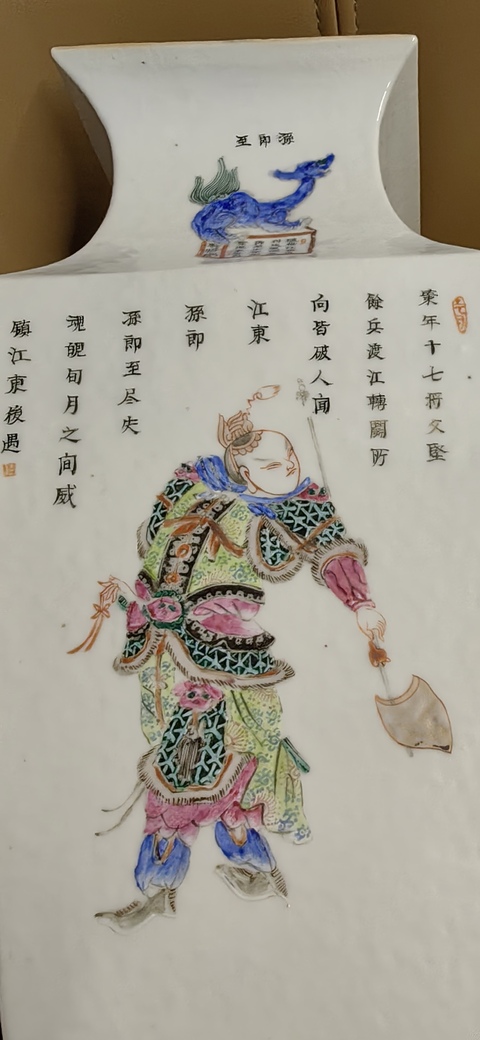 孫郎至
策年十七将父堅
餘兵渡江轉鬭所
向皆破人聞
江東
孫郎
孫郎至尽失
魂魄旬月之間威
鎮江東後遇